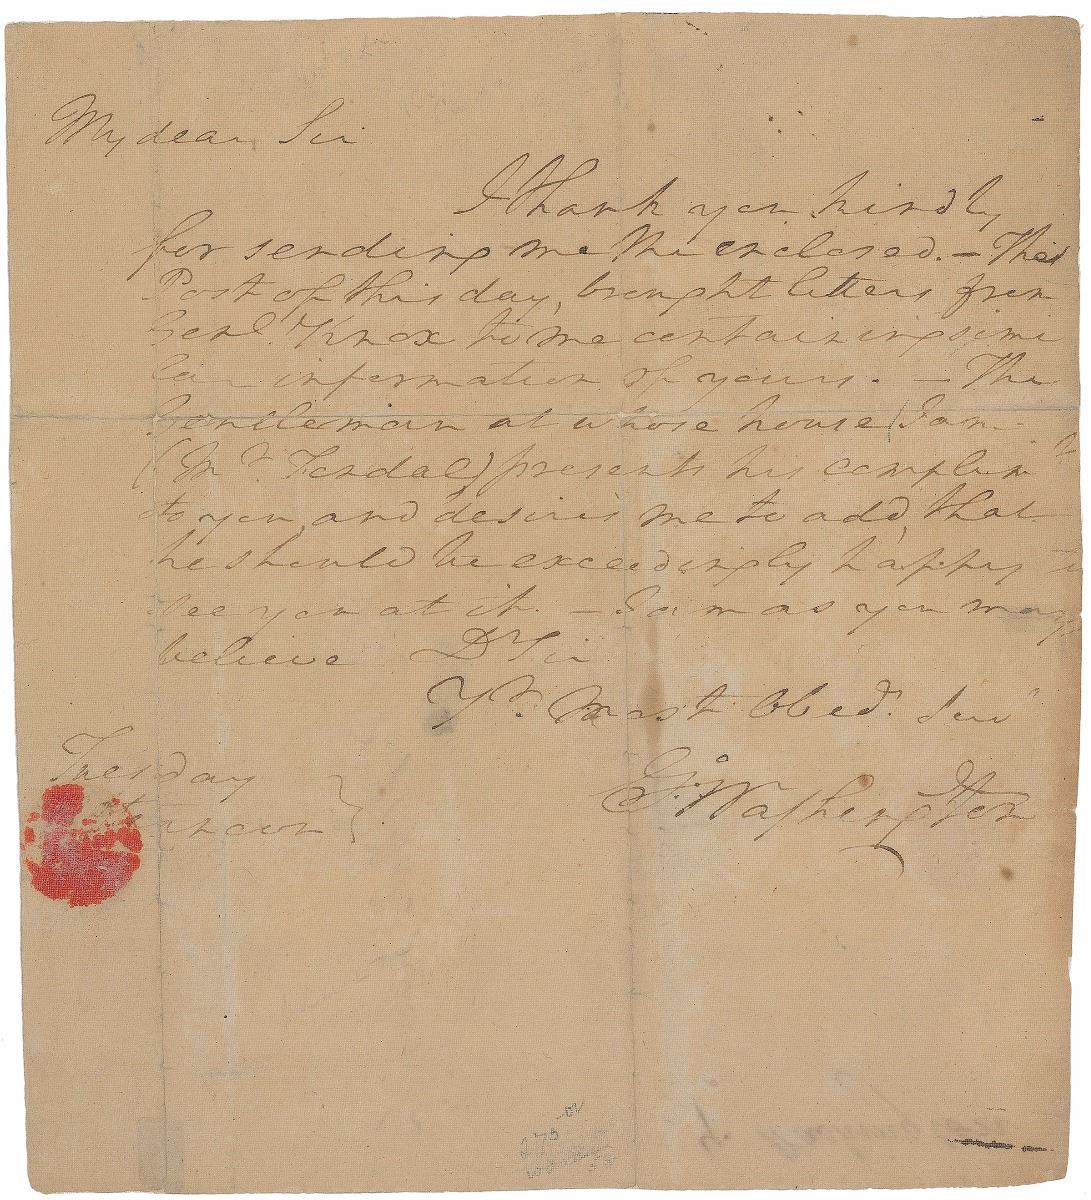 My dear Sir
I thank you kindly
for sending me the enclosed. — The
Post of this day, brought letters from
Genl. Knox to me containing simi
lar information of yours. — The
Gentleman at whose house I am
(Mr. Tendal) presents his complimts
to you, and desires me to add, that
he should be exceedingly happy to
see you at it. — I am as you may
believe Dr Sir
Yr. Most Obedt. Serv
Go: Washington
Tuesday
Afternoon }